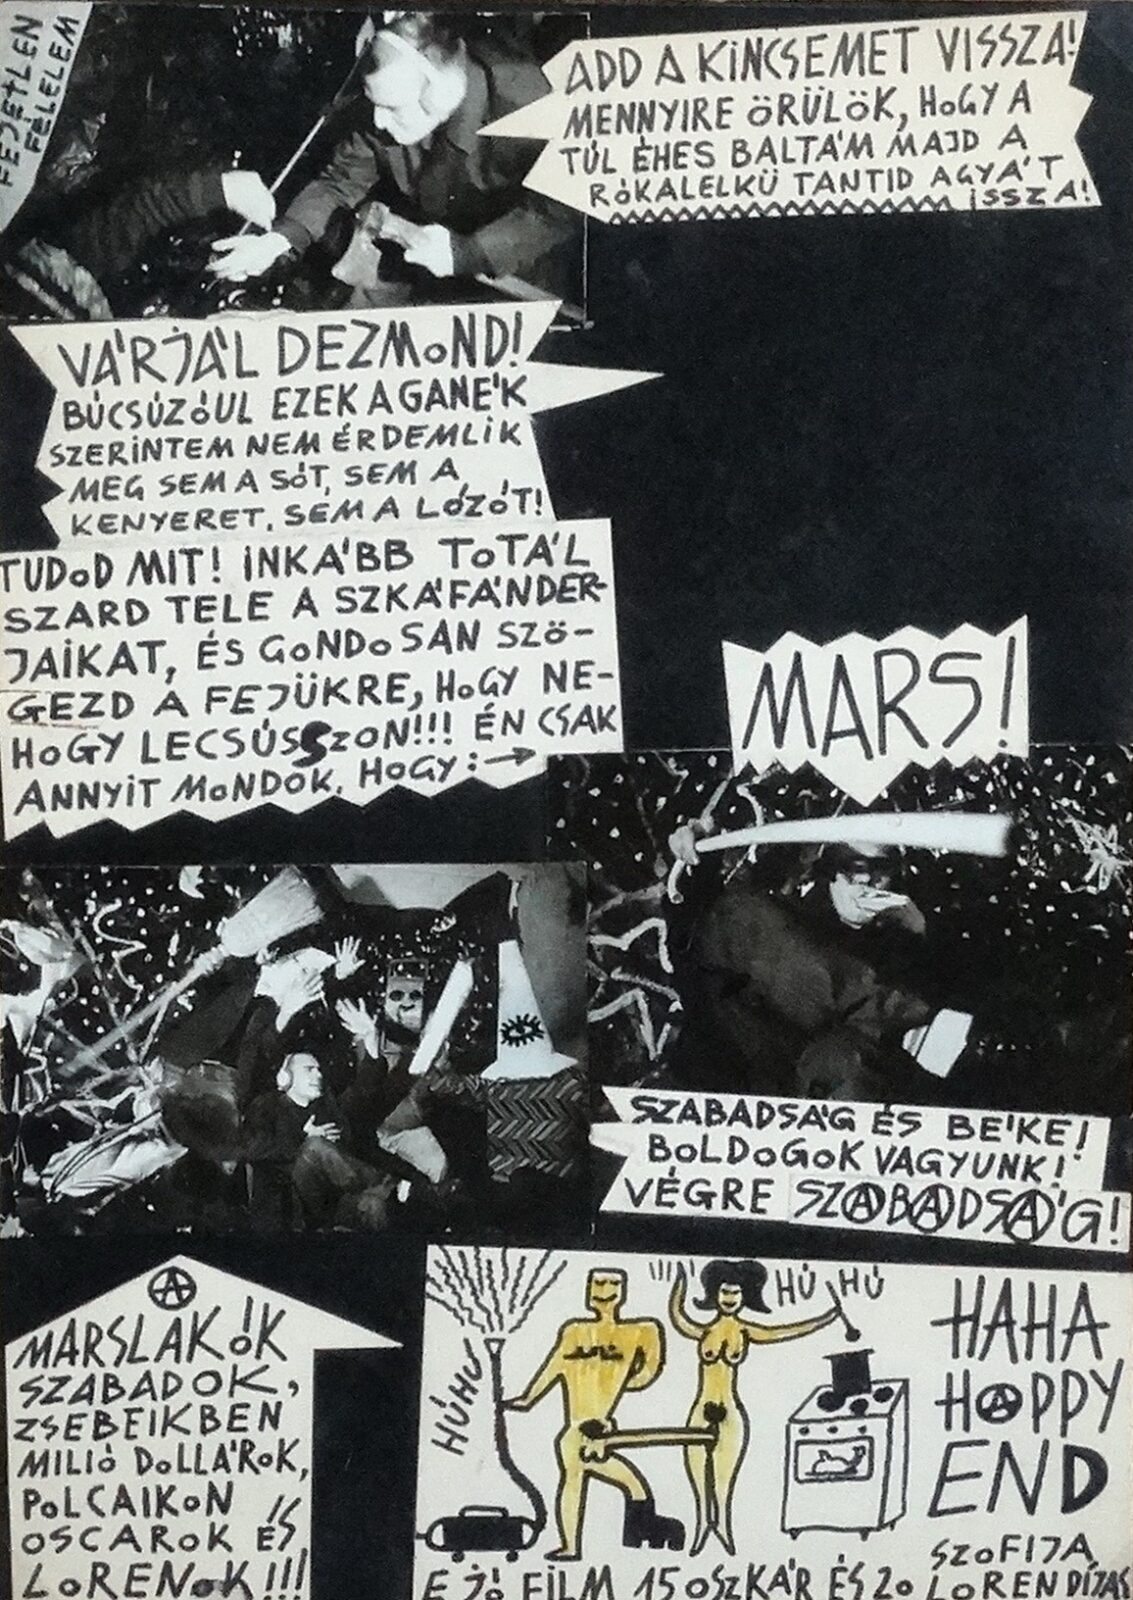 FEJETLEN
FÉLELEM
ADD A KINCSEMET VISSZA!
MENNYIRE ÖRÜLÖK, HOGY A
TÚL ÉHES BALTÁM MAJD A
RÓKALELKÜ TANTID AGYÁT
ISSZA!
VÁRJÁL DEZMOND!
BÚCSÚZÓUL EZEK A GANÉK
SZERINTEM NEM ÉRDEMLIK
MEG SEM A SÓT, SEM A
KENYERET, SEM A LÓZÓT!
TUDOD MIT! INKÁBB TOTÁL
SZARD TELE A SZKÁFÁNDER-
JAIKAT, ÉS GONDOSAN SZÖ-
GEZD A FEJÜKRE, HOGY NE-
HOGY LECSÚSSZON!!! ÉN CSAK
ANNYIT MONDOK, HOGY: →
MARS!
SZABADSÁG ÉS BÉKE!
BOLDOGOK VAGYUNK!
VÉGRE SZABADSÁG!
A
MARSLAKÓK
SZABADOK,
ZSEBEIKBEN
MILIÓ DOLLÁROK,
POLCAIKON
OSCAROK ÉS
LORENOK!!!
HÚHÚ
HÚ HÚ
HAHA
HAPPY
END
SZOFIJA
E JÓ FILM 15 OSZKÁR ÉS 20 LOREN DÍJAS